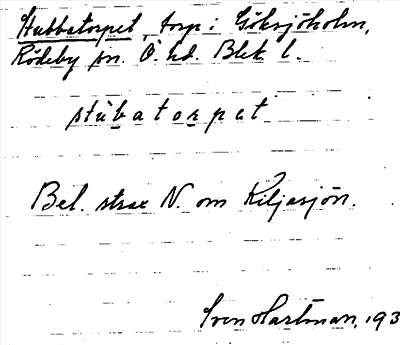 Stubbatorpet, torp: Göksjöholm,
Rödeby sn. Ö. hd. Blek. l.
stùbatorpet
Bel. strax N. om Kiljasjön.
Sven Hartman, 193